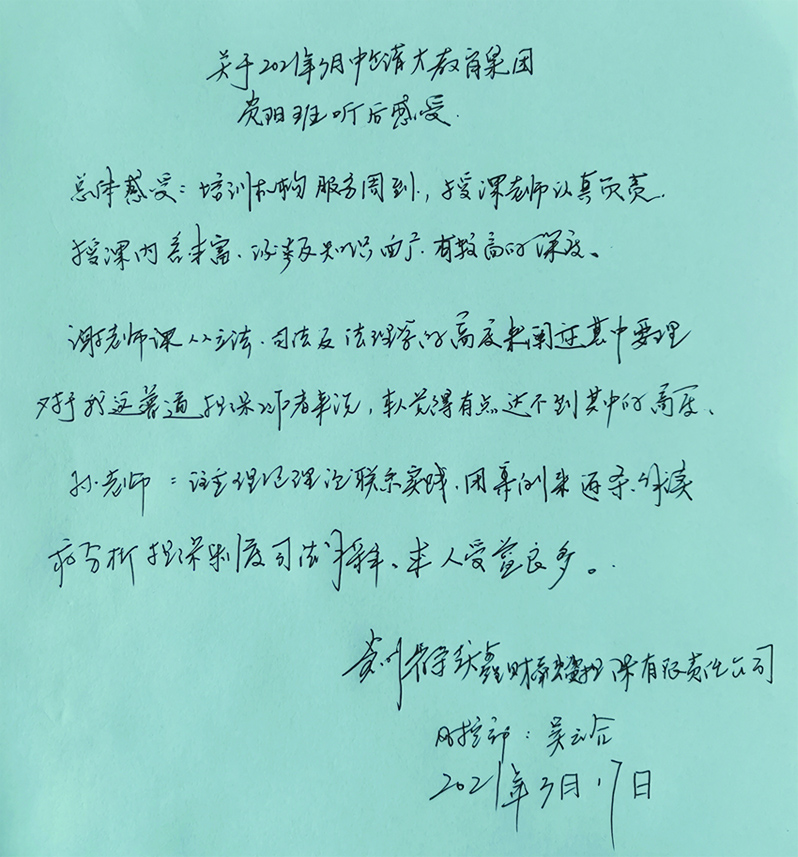 关于2021年3月中企清大教育集团
贵阳班听后感受.
总体感受：培训机构服务周到，授课老师认真负责.
授课内容丰富、涉及知识面广.有较高的深度。
谢老师课从立法、司法及法理学的高度来阐述其中要理
对于我这普通担保工作者来说，本人觉得有点达不到其中的高度、
孙老师：注重理论联系实践.用案例来逐条解读
和分析担保制度司法解释、本人受益良多。
贵州 鑫财 担保有限责任公司
风控部：吴
2021年3月17日